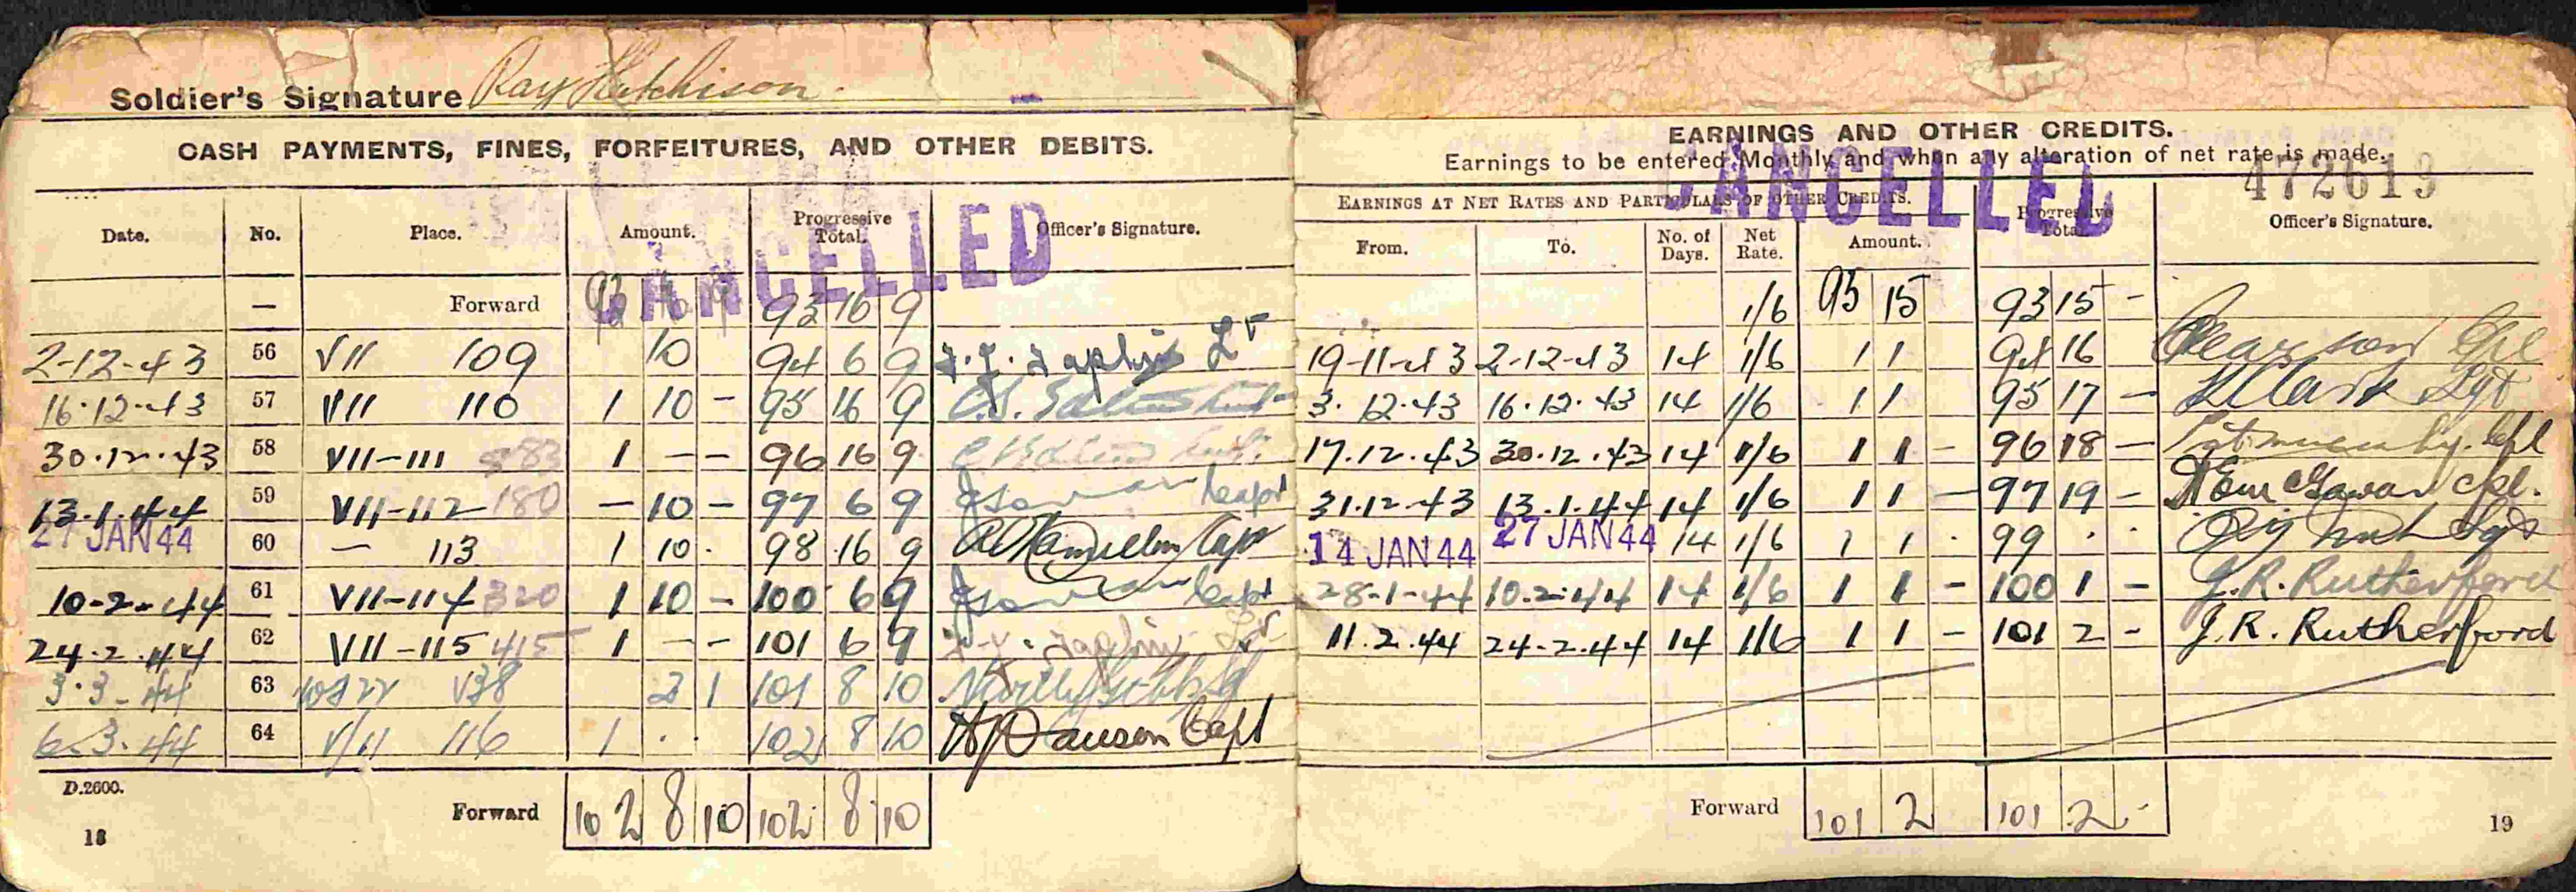 Soldier's Signature Ray Hutchison
CASH PAYMENTS, FINES, FORFEITURES, AND OTHER DEBITS.
Date. No. Place. Amount. Progressive Total. Officer's Signature.
CANCELLED
— Forward 93 16 9 93 16 9
2-12-43 56 VII 109 10 94 6 9 Lt
16.12.43 57 VII 110 1 10 - 95 16 9
30.12.43 58 VII-111 1 - - 96 16 9
13.1.44 59 VII-112 180 - 10 - 97 6 9 Capt
27 JAN 44 60 — 113 1 10 . 98 16 9 Capt
10-2-44 61 VII-114 320 1 10 - 100 6 9 Capt
24.2.44 62 VII-115 415 1 - - 101 6 9 Lt
3.3-44 63 V38 2 1 101 8 10
6.3.44 64 VII 116 1 . . 102 8 10 Capt
D.2600.
Forward 102 8 10 102 8 10
18
EARNINGS AND OTHER CREDITS.
Earnings to be entered Monthly and when any alteration of net rate is made.
472613
CANCELLED
EARNINGS AT NET RATES AND PARTICULARS OF OTHER CREDITS. Progressive Total. Officer's Signature.
From. To. No. of Days. Net Rate. Amount.
1/6 93 15 93 15 -
19-11-43 2-12-43 14 1/6 1 1 94 16 Cpl
3.12.43 16.12.43 14 1/6 1 1 95 17 - Clark Sgt
17.12.43 30.12.43 14 1/6 1 1 - 96 18 -
31.12-43 13.1.44 14 1/6 1 1 - 97 19 - Cpl.
14 JAN 44 27 JAN 44 14 1/6 1 1 . 99 . .
28-1-44 10.2.44 14 1/6 1 1 - 100 1 - J.R. Rutherford
11.2.44 24-2-44 14 1/6 1 1 - 101 2 - J.R. Rutherford
Forward 101 2 101 2 -
19